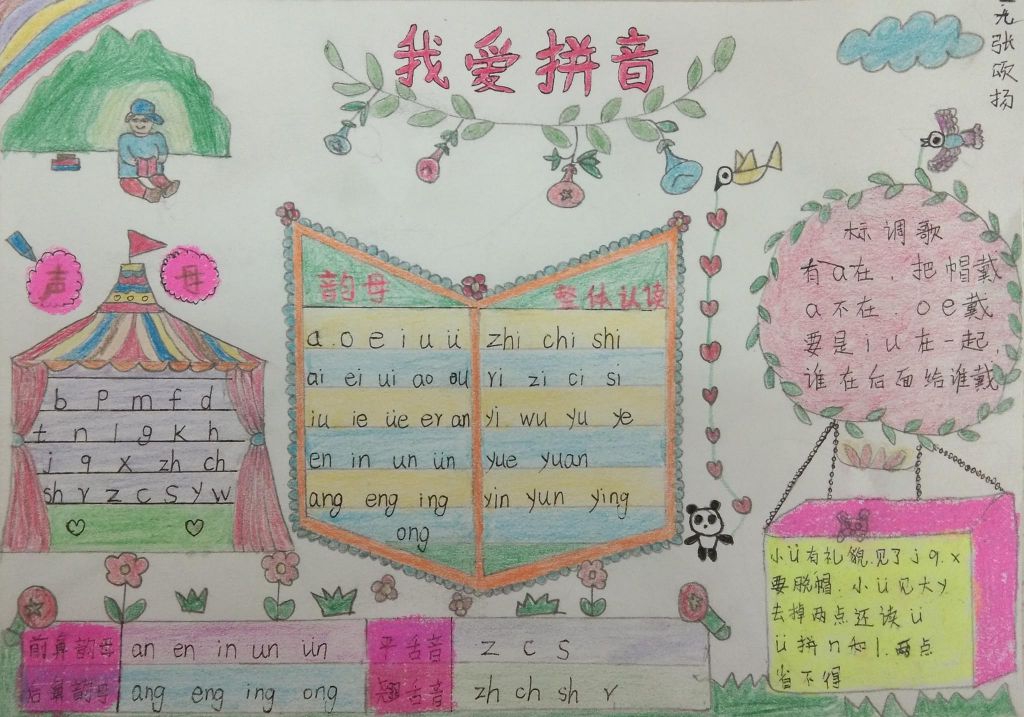 我爱拼音
一九张颂扬
声母
b p m f d
t n l g k h
j q x zh ch
sh r z c s y w
韵母
a o e i u ü
ai ei ui ao ou
iu ie üe er an
en in un ün
ang eng ing
ong
整体认读
zhi chi shi
ri zi ci si
yi wu yu ye
yue yuan
yin yun ying
标调歌
有a在，把帽戴
a不在，oe戴
要是iu在一起，
谁在后面给谁戴
小ü有礼貌，见了j q x
要脱帽，小ü见大y
去掉两点还读ü
ü拼n和l，两点
省不得
前鼻韵母 an en in un ün
后鼻韵母 ang eng ing ong
平舌音 z c s
翘舌音 zh ch sh r